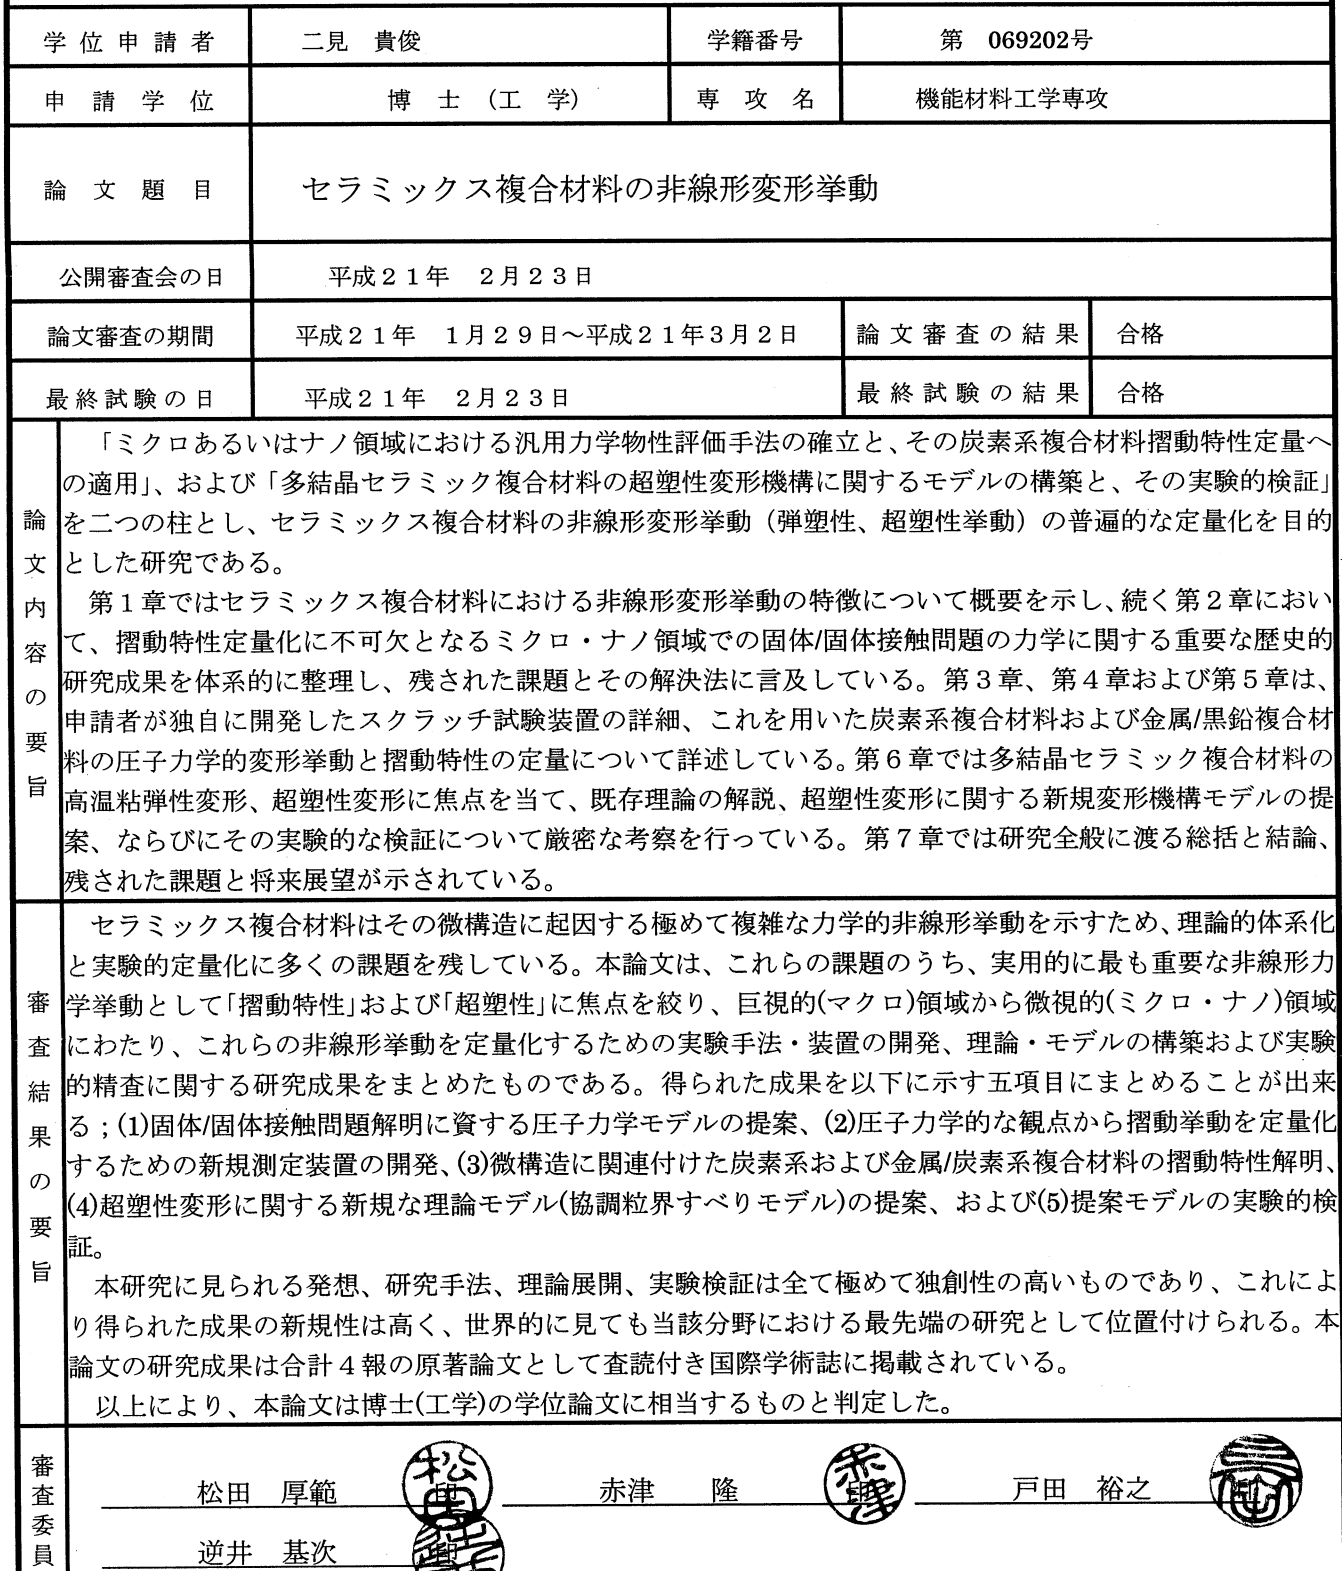 学位申請者 二見 貴俊 学籍番号 第 069202号
申請学位 博士(工学) 専攻名 機能材料工学専攻
論文題目 セラミックス複合材料の非線形変形挙動
公開審査会の日 平成21年 2月23日
論文審査の期間 平成21年 1月29日~平成21年3月2日 論文審査の結果 合格
最終試験の日 平成21年 2月23日 最終試験の結果 合格
論文内容の要旨
「ミクロあるいはナノ領域における汎用力学物性評価手法の確立と、その炭素系複合材料摺動特性定量へ
の適用」、および「多結晶セラミック複合材料の超塑性変形機構に関するモデルの構築と、その実験的検証」
を二つの柱とし、セラミックス複合材料の非線形変形挙動(弾塑性、超塑性挙動)の普遍的な定量化を目的
とした研究である。
第1章ではセラミックス複合材料における非線形変形挙動の特徴について概要を示し、続く第2章におい
て、摺動特性定量化に不可欠となるミクロ・ナノ領域での固体/固体接触問題の力学に関する重要な歴史的
研究成果を体系的に整理し、残された課題とその解決法に言及している。第3章、第4章および第5章は、
申請者が独自に開発したスクラッチ試験装置の詳細、これを用いた炭素系複合材料および金属/黒鉛複合材
料の圧子力学的変形挙動と摺動特性の定量について詳述している。第6章では多結晶セラミック複合材料の
高温粘弾性変形、超塑性変形に焦点を当て、既存理論の解説、超塑性変形に関する新規変形機構モデルの提
案、ならびにその実験的な検証について厳密な考察を行っている。第7章では研究全般に渡る総括と結論、
残された課題と将来展望が示されている。
審査結果の要旨
セラミックス複合材料はその微構造に起因する極めて複雑な力学的非線形挙動を示すため、理論的体系化
と実験的定量化に多くの課題を残している。本論文は、これらの課題のうち、実用的に最も重要な非線形力
学挙動として「摺動特性」および「超塑性」に焦点を絞り、巨視的(マクロ)領域から微視的(ミクロ・ナノ)領域
にわたり、これらの非線形挙動を定量化するための実験手法・装置の開発、理論・モデルの構築および実験
的精査に関する研究成果をまとめたものである。得られた成果を以下に示す五項目にまとめることが出来
る;(1)固体/固体接触問題解明に資する圧子力学モデルの提案、(2)圧子力学的な観点から摺動挙動を定量化
するための新規測定装置の開発、(3)微構造に関連付けた炭素系および金属/炭素系複合材料の摺動特性解明、
(4)超塑性変形に関する新規な理論モデル(協調粒界すべりモデル)の提案、および(5)提案モデルの実験的検
証。
本研究に見られる発想、研究手法、理論展開、実験検証は全て極めて独創性の高いものであり、これによ
り得られた成果の新規性は高く、世界的に見ても当該分野における最先端の研究として位置付けられる。本
論文の研究成果は合計4報の原著論文として査読付き国際学術誌に掲載されている。
以上により、本論文は博士(工学)の学位論文に相当するものと判定した。
審査委員
松田 厚範 印 松田 赤津 隆 印 赤津 戸田 裕之 印
逆井 基次 印